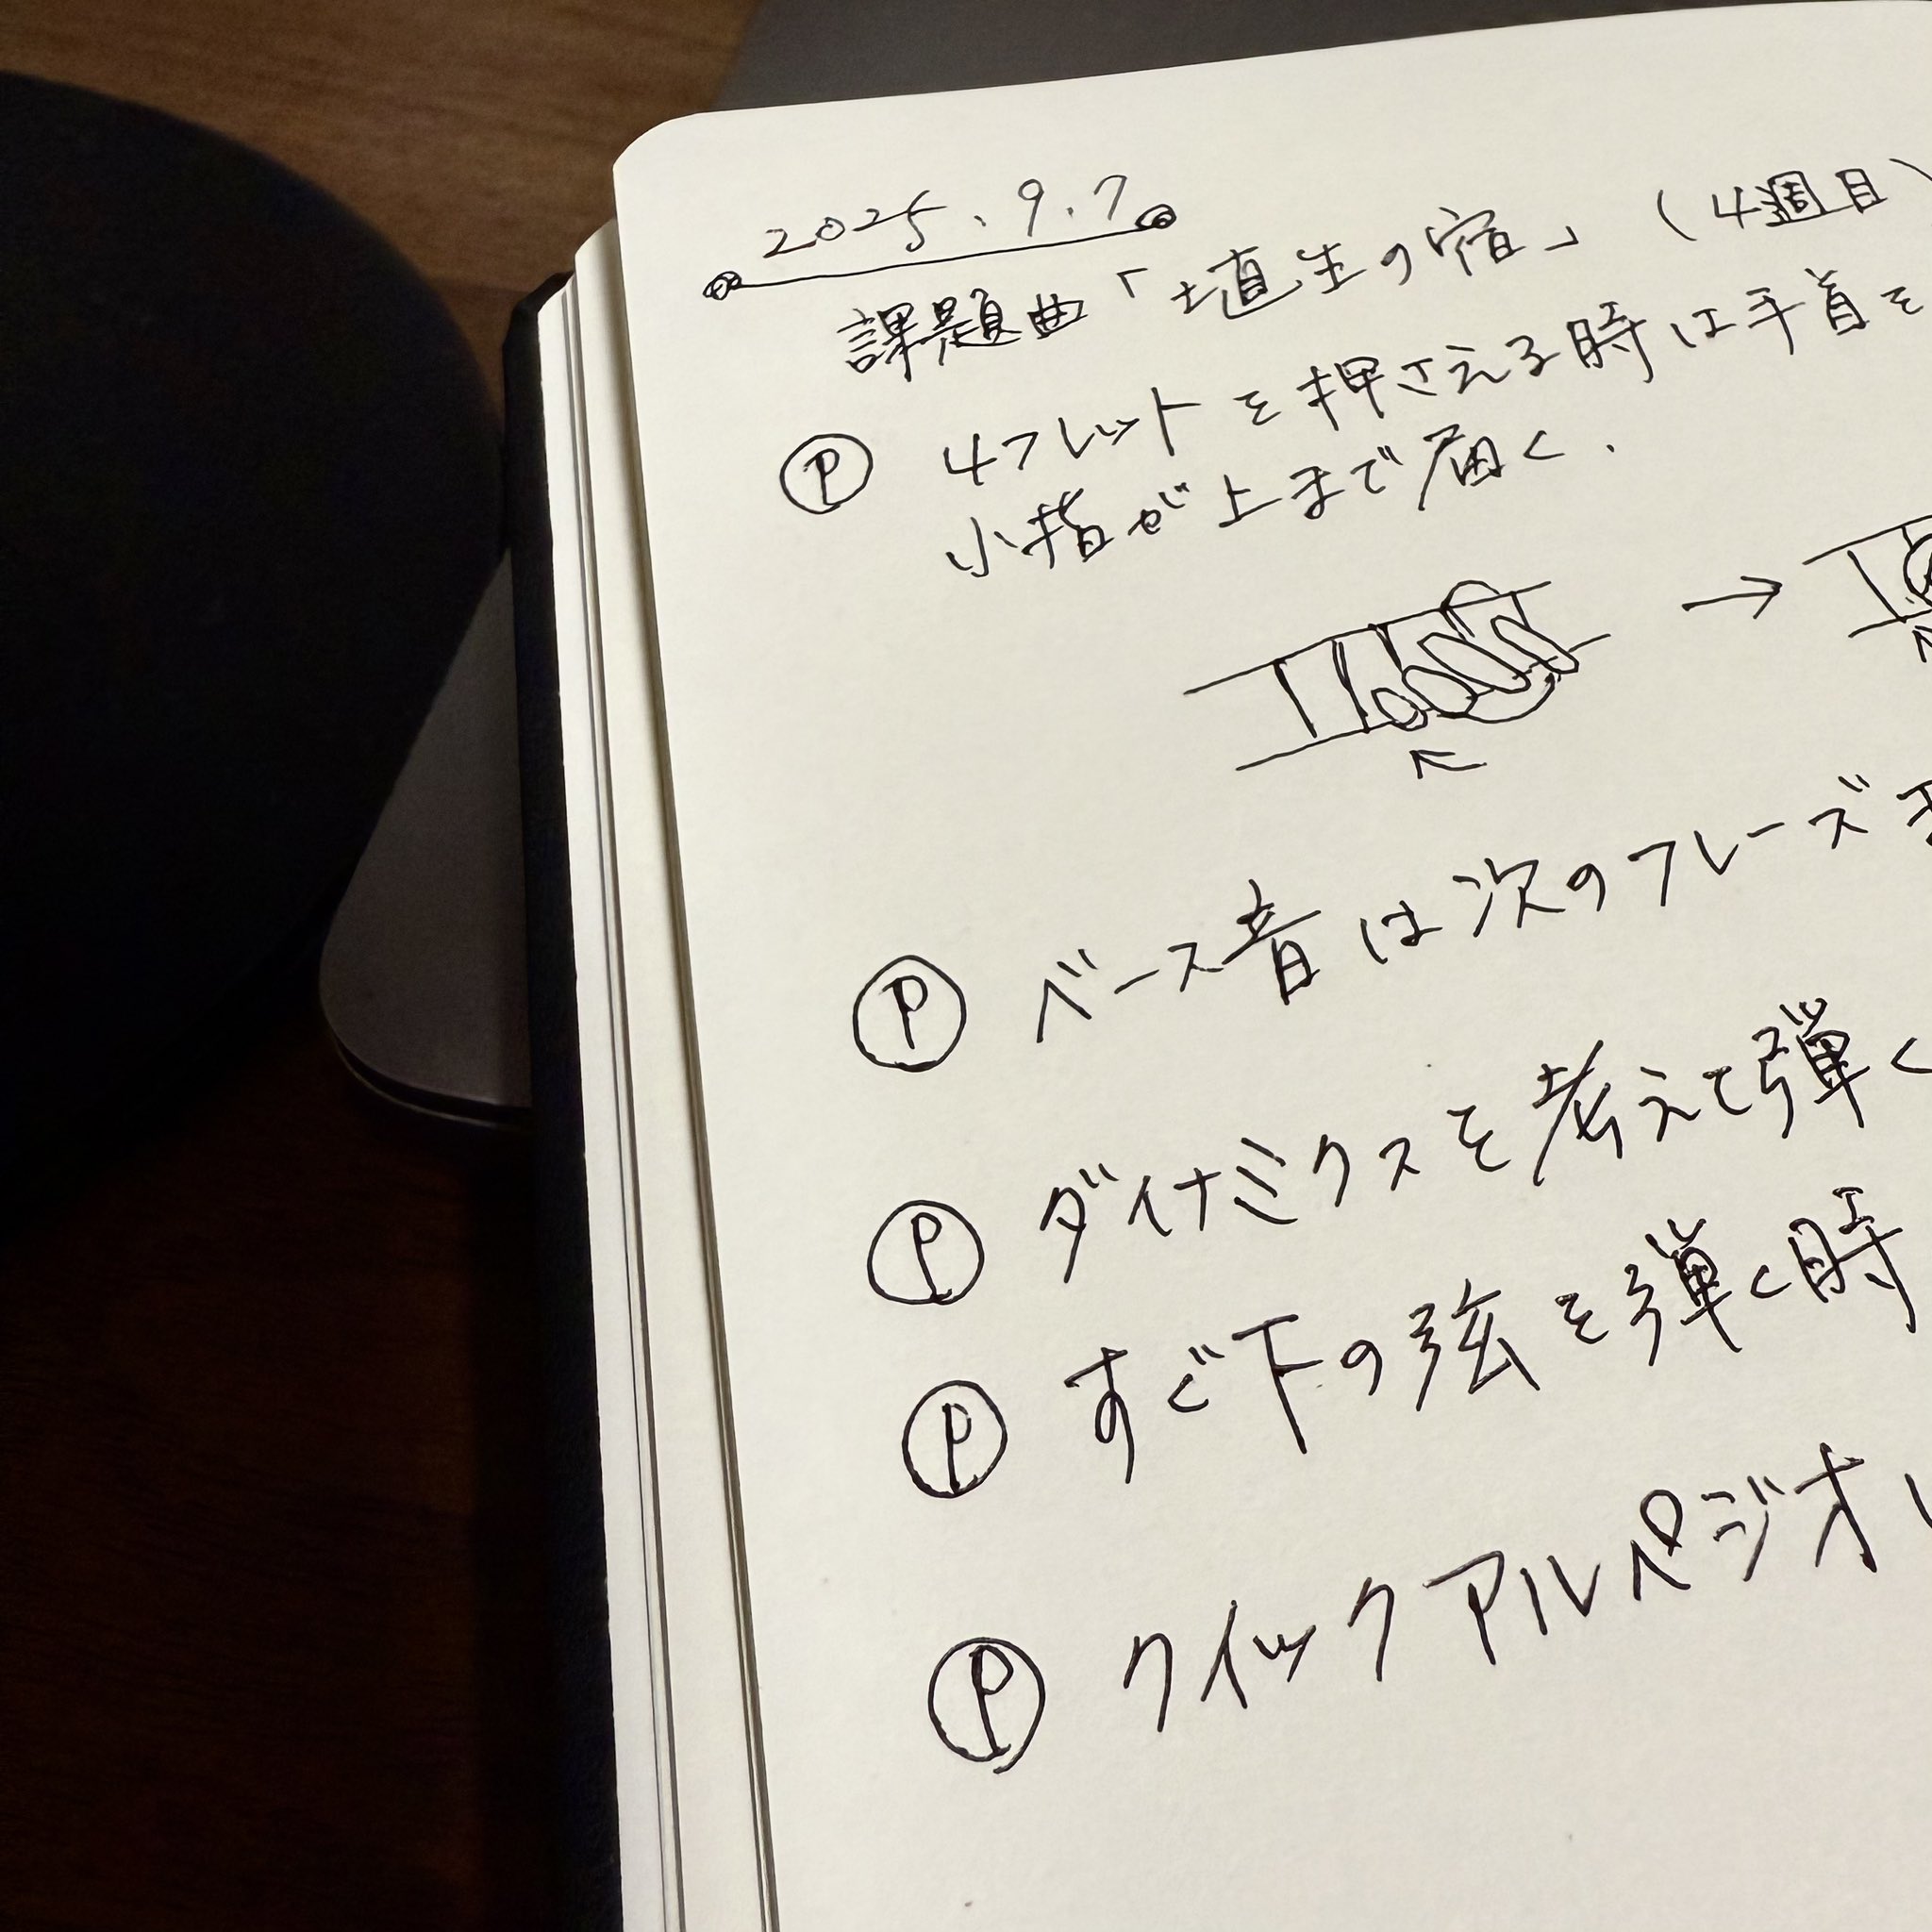 2025.9.7
課題曲「埴生の宿」(4週目)
Ⓟ 4フレットを押さえる時は手首を
小指が上まで届く.
→
Ⓟ ベース音は次のフレーズ
Ⓟ ダイナミクスを考えて弾く
Ⓟ すぐ下の弦を弾く時
Ⓟ クイックアルペジオ